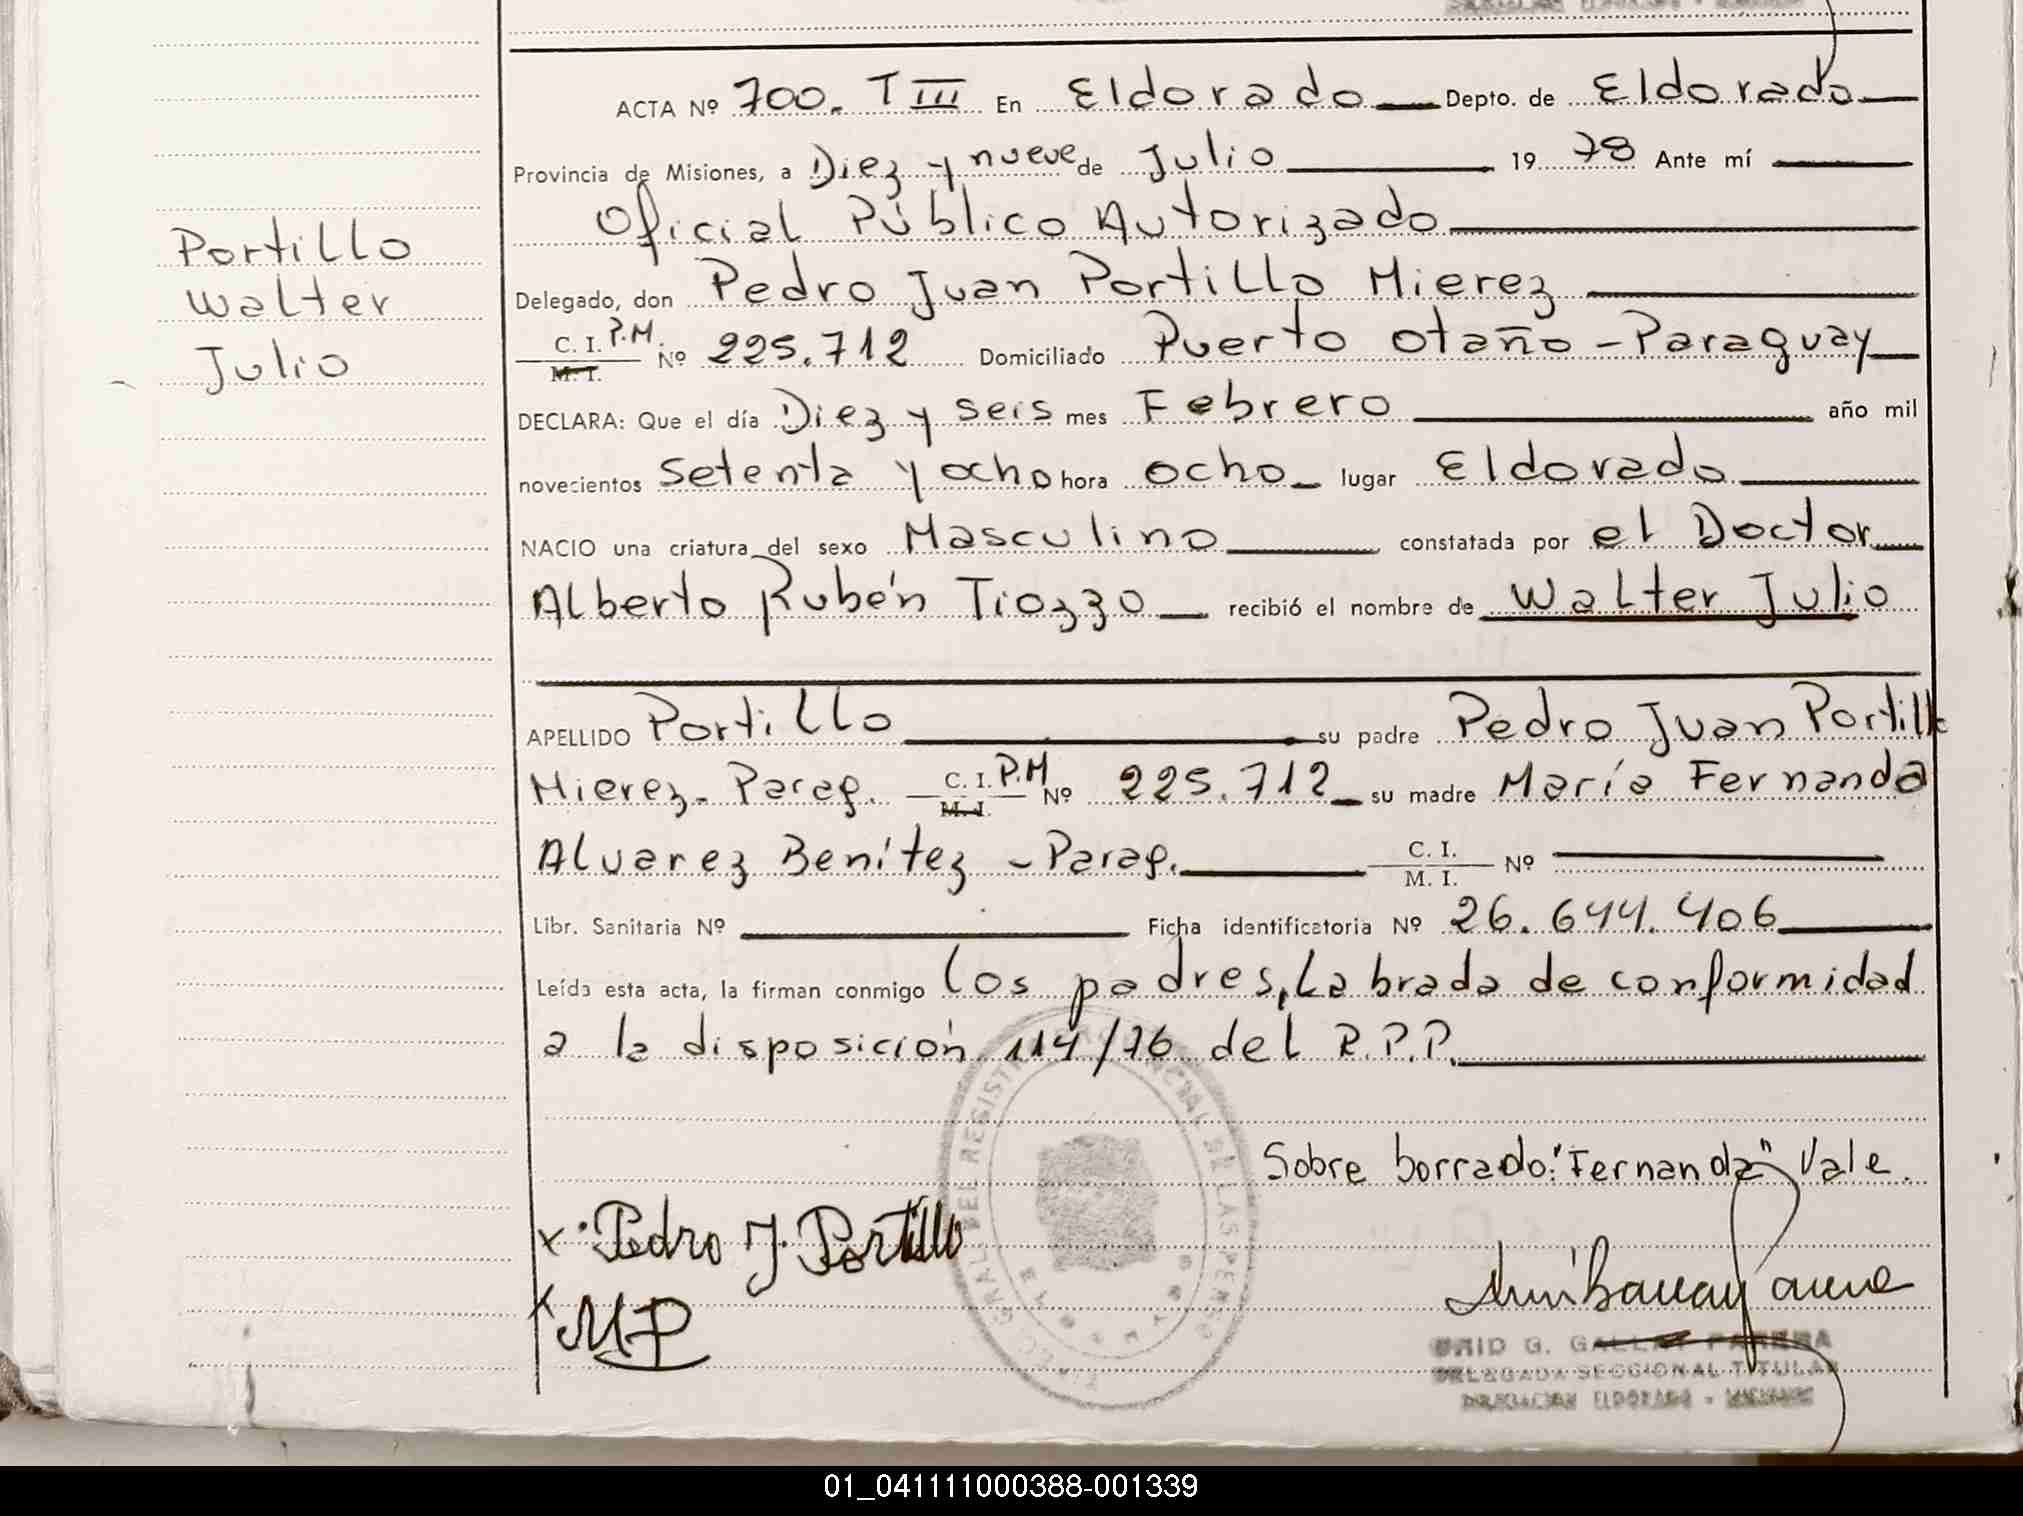 ACTA Nº 700. T III En Eldorado Depto. de Eldorado
Provincia de Misiones, a Diez y nueve de Julio 19 78 Ante mí
Oficial Público Autorizado
Portillo
Walter
Julio
Delegado, don Pedro Juan Portillo Mierez
C. I. P.M.
M. I. Nº 225.712 Domiciliado Puerto Otaño - Paraguay
DECLARA: Que el día Diez y seis mes Febrero año mil
novecientos Setenta y ocho hora ocho lugar Eldorado
NACIO una criatura del sexo Masculino constatada por el Doctor
Alberto Rubén Tiozzo recibió el nombre de Walter Julio
APELLIDO Portillo su padre Pedro Juan Portillo
Mierez - Parag. C. I. P.M Nº 225.712 su madre María Fernanda
M. I.
Alvarez Benítez - Parag. C. I. Nº
M. I.
Libr. Sanitaria Nº Ficha identificatoria Nº 26.644.406
Leída esta acta, la firman conmigo los padres, Labrada de conformidad
a la disposición 114/76 del R.P.P.
Sobre borrado: "Fernanda" Vale.
x. Pedro J. Portillo
x MP
G. GALLAY PARERA
DELEGADA SECCIONAL TITULAR
DELEGACION ELDORADO - MISIONES
DEL REGISTRO PROVINCIAL DE LAS PERSO
01_041111000388-001339